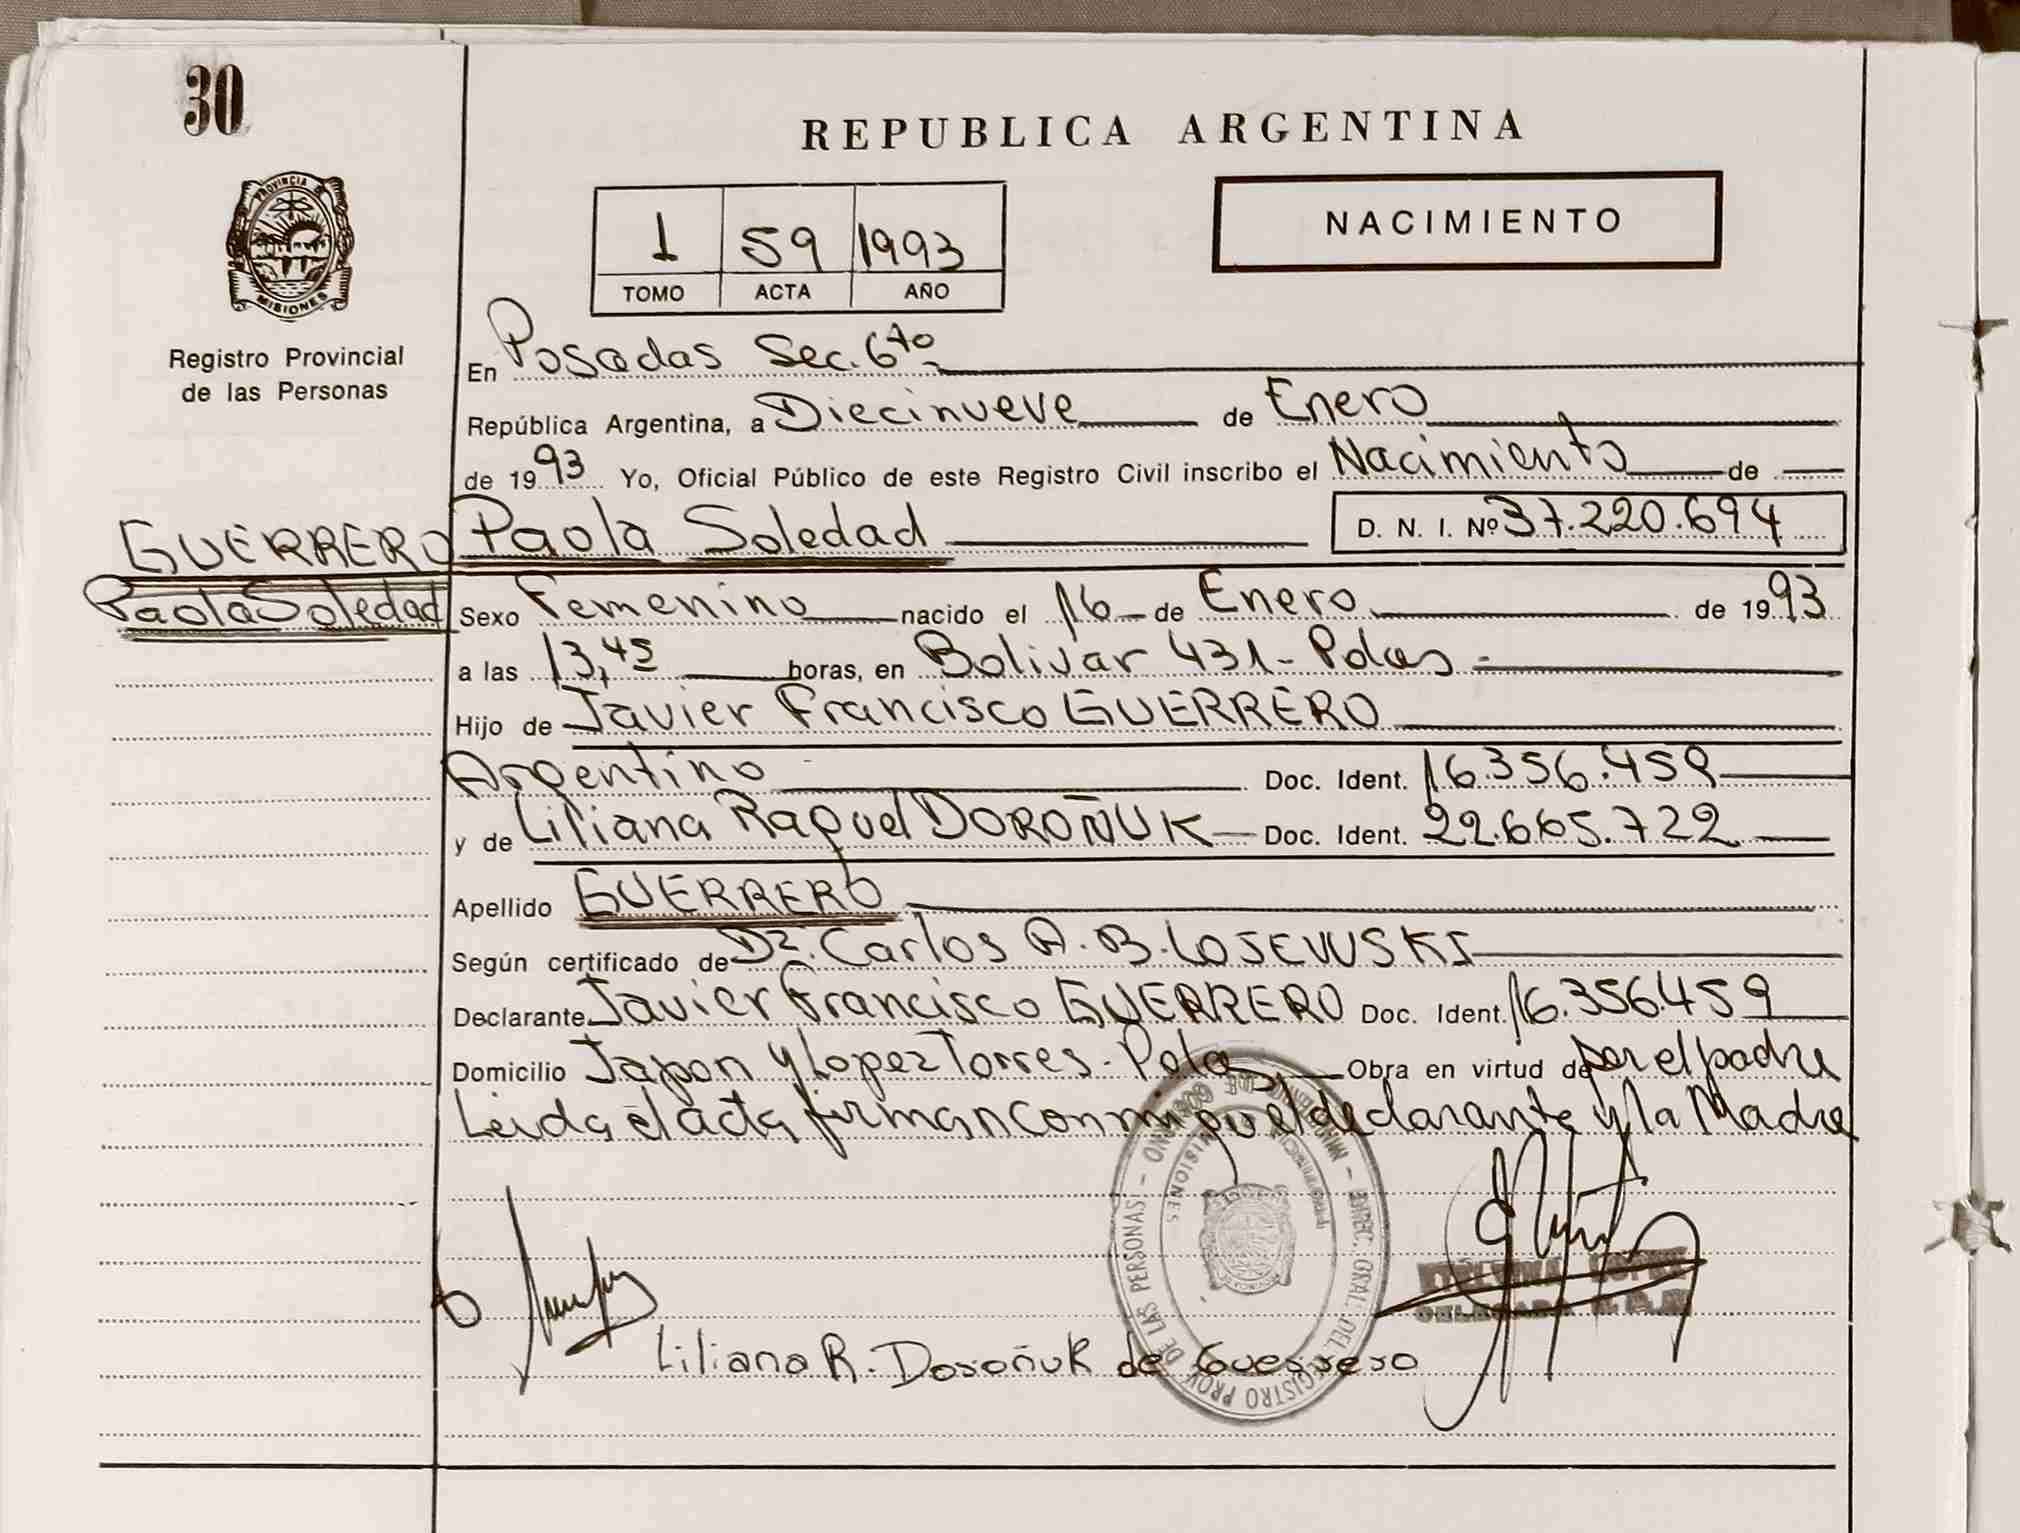 30
REPUBLICA ARGENTINA
PROVINCIA DE
MISIONES
Registro Provincial
de las Personas
1 59 1993
TOMO ACTA AÑO
NACIMIENTO
En Posadas Sec. 6to
República Argentina, a Diecinueve de Enero
de 1993 Yo, Oficial Público de este Registro Civil inscribo el Nacimiento de
GUERRERO
Paola Soledad
Paola Soledad D. N. I. Nº 37.220.694
Sexo Femenino nacido el 16 de Enero de 1993
a las 13,45 horas, en Bolivar 431 - Pdas -
Hijo de Javier Francisco GUERRERO
Argentino Doc. Ident. 16.356.459
y de Liliana Raquel DOROÑUK Doc. Ident. 22.665.722
Apellido GUERRERO
Según certificado de Dr. Carlos A. B. LOSEWSKI
Declarante Javier Francisco GUERRERO Doc. Ident. 16.356.459
Domicilio Japon y Lopez Torres - Pdas Obra en virtud de por el padre
Leida el acta firman conmigo el declarante y la Madre
MINISTERIO DE GOBIERNO - DIREC. GRAL. DEL REGISTRO PROV. DE LAS PERSONAS -
PROVINCIA MISIONES
Liliana R. Doroñuk de Guerrero